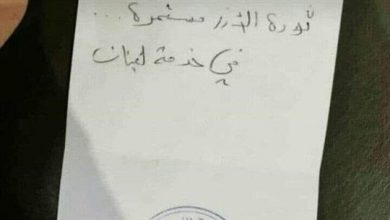 ثورة الأرز مستمرة ...
في خدمة لبنان